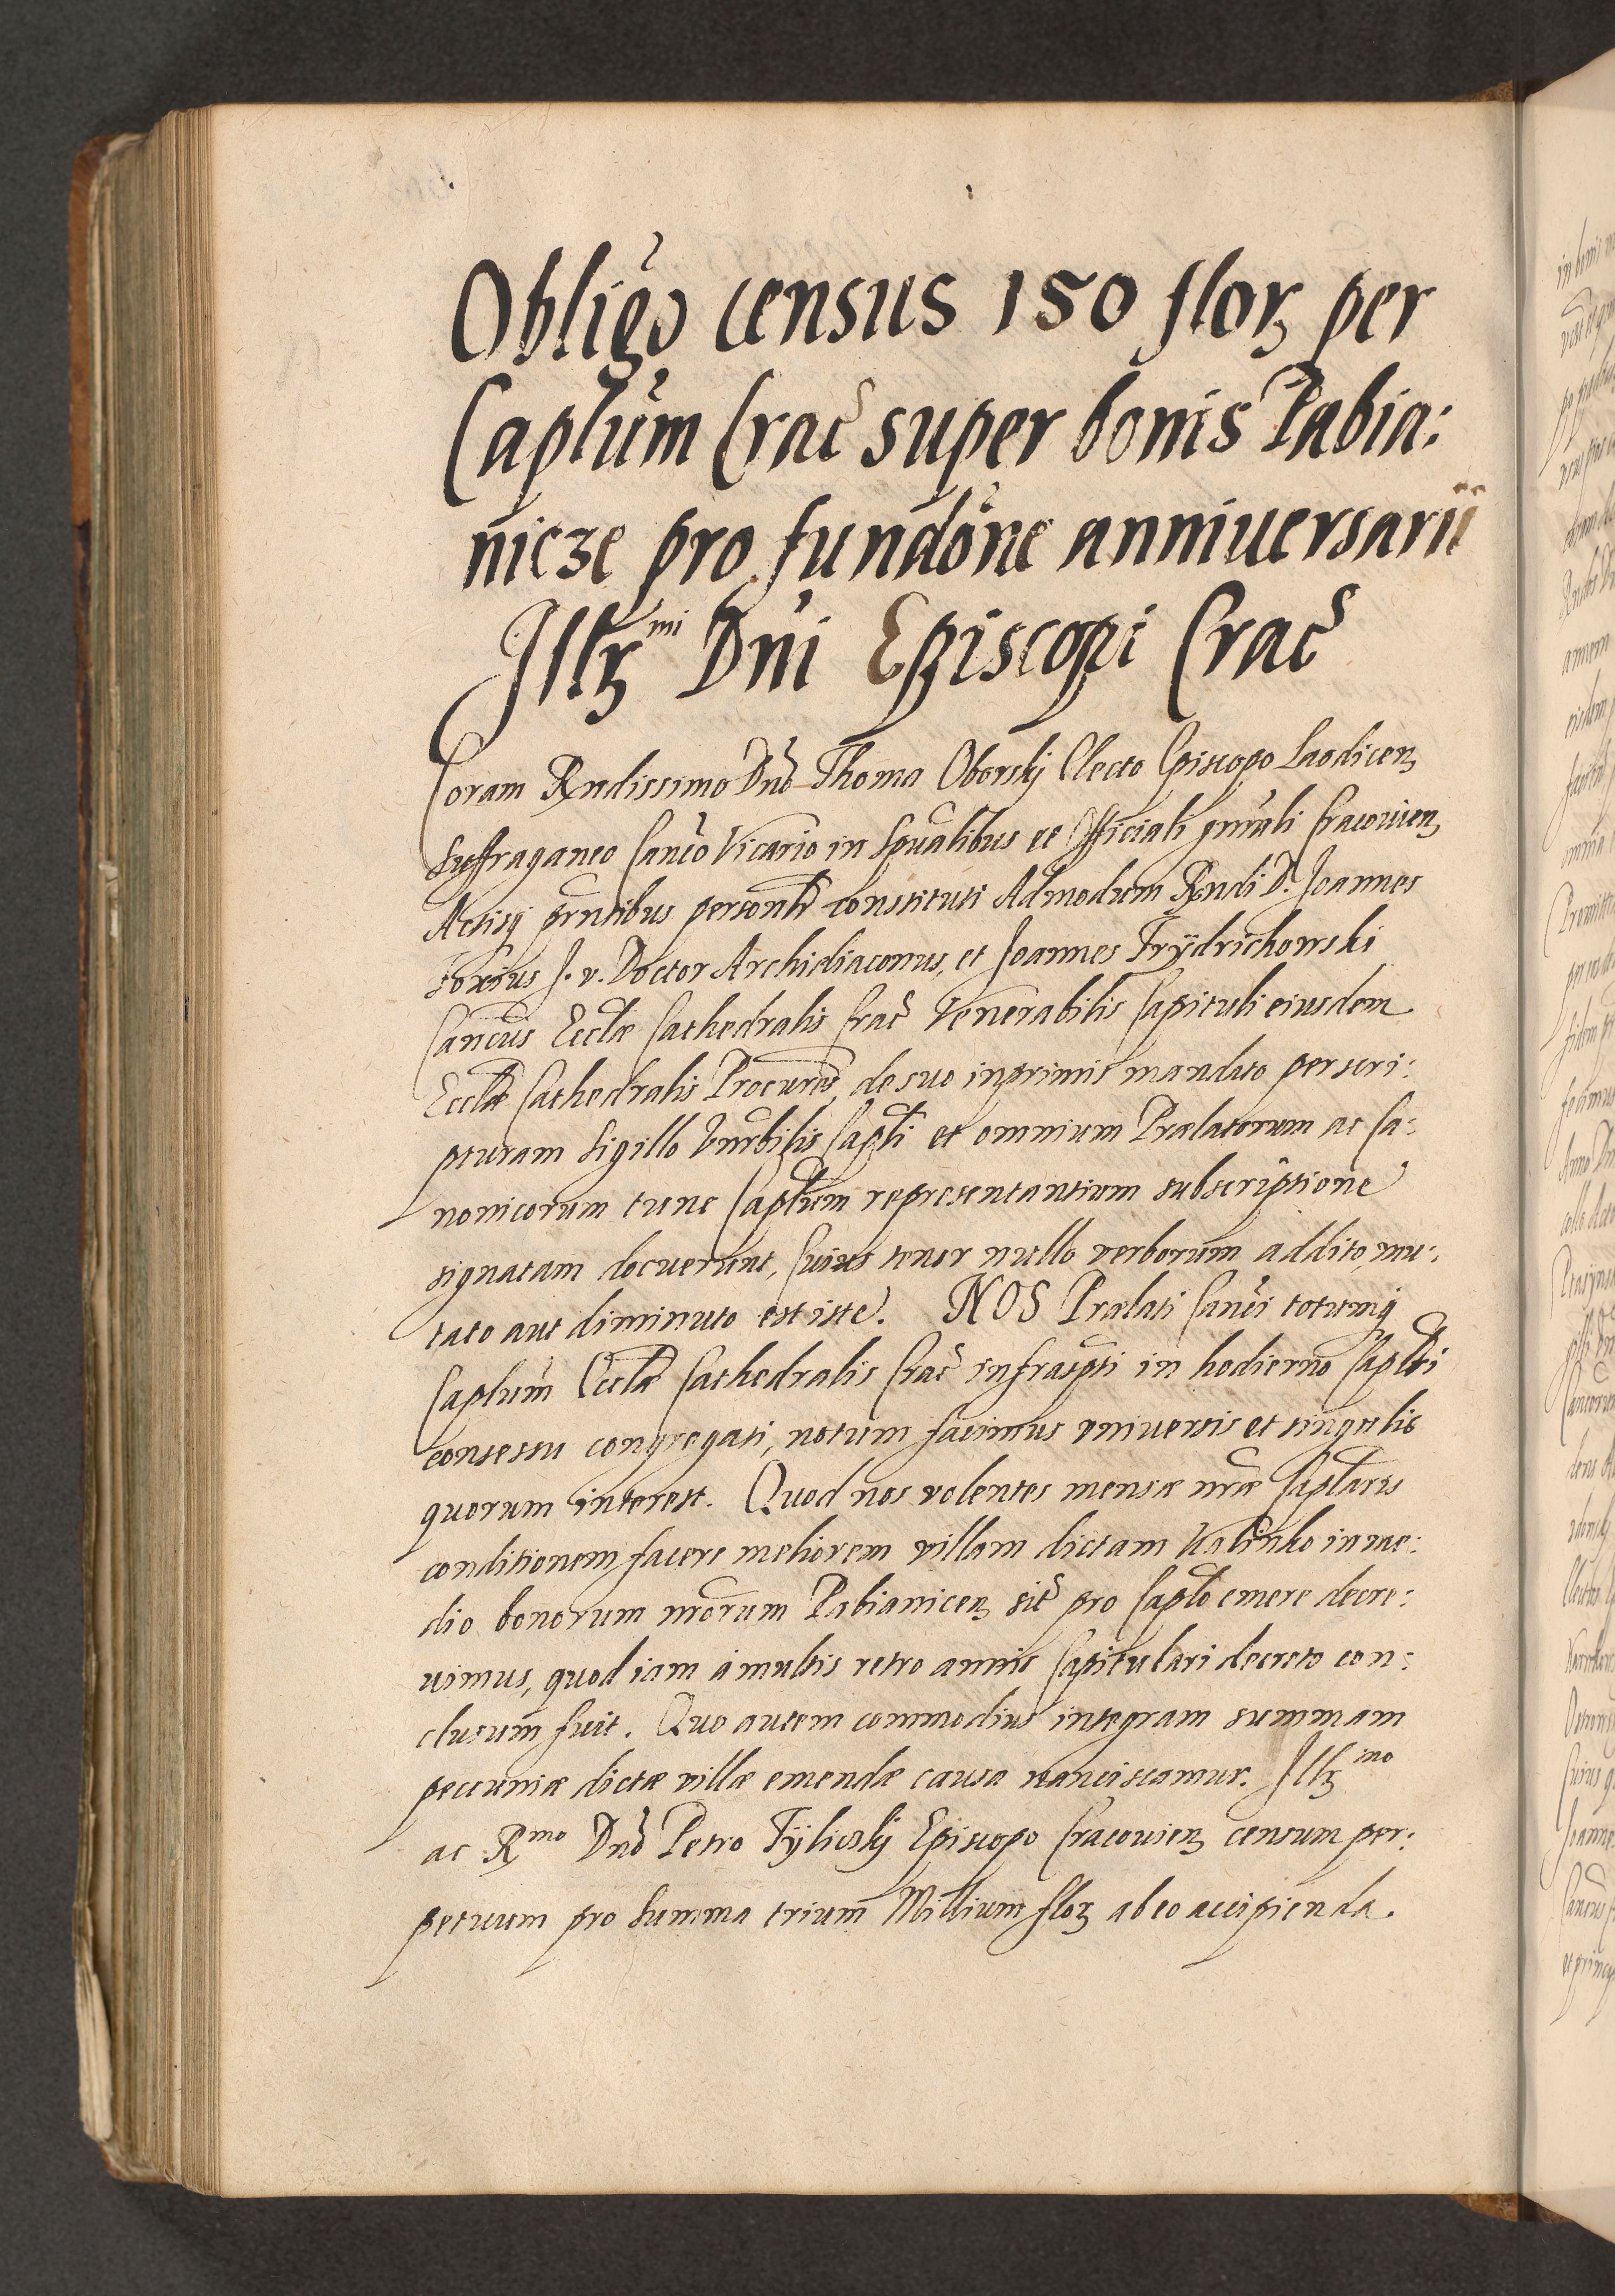 Obligo census 150 floꝝ per
Caplum Crac super bonis Pabia:
nicze pro fundone anniuersarii
Illꝝ mi Dni Episcopi Crac
Coram Rndissimo Dno Thoma Oborskj Electo Episcopo Laodiceñ
Suffraganeo Canco Vicario in Spualibus et Officiali gnrali Cracouieñ
Actisq prntibus personlr constituti Admodum Rndi D. Joannes
Foxius J. v. Doctor Archidiaconus, et Joannes Frÿdrichowski
Cancus Ecclæ Cathedralis Crac Venerabilis Capituli eiusdem
Ecclæ Cathedralis Procures, de suo inprimis mandato per scri:
pturam Sigillo Vnrbilis Capli et omnium Prælatorum ac Ca:
nonicorum tunc Caplum representantium subscriptione
signatam docuerunt, Cuius tenor nullo verborum addito, mu:
tato aut diminuto est iste. NOS Prælati Canci totumq
Caplum Ecclæ Cathedralis Crac infrascpti in hodierno Caplri
consessu congregati, notum facimus vniuersis et singulis
quorum interest. Quod nos volentes mensæ nræ Caplaris
conditionem facere meliorem villam dictam Kalinko in me:
dio bonorum nrorum Pabianiceñ sit pro Caplo emere decre:
uimus, quod iam à multis retro annis Capitulari decreto con:
clusum fuit. Quo autem commodius integram summam
pecuniæ dictæ villæ emendæ causa nanciscamur. Illꝝ mo
ac Rmo Dno Petro Tÿlickj Episcopo Cracouieñ censum per:
petuum pro Summa trium Millium floꝝ ab eo accipienda.